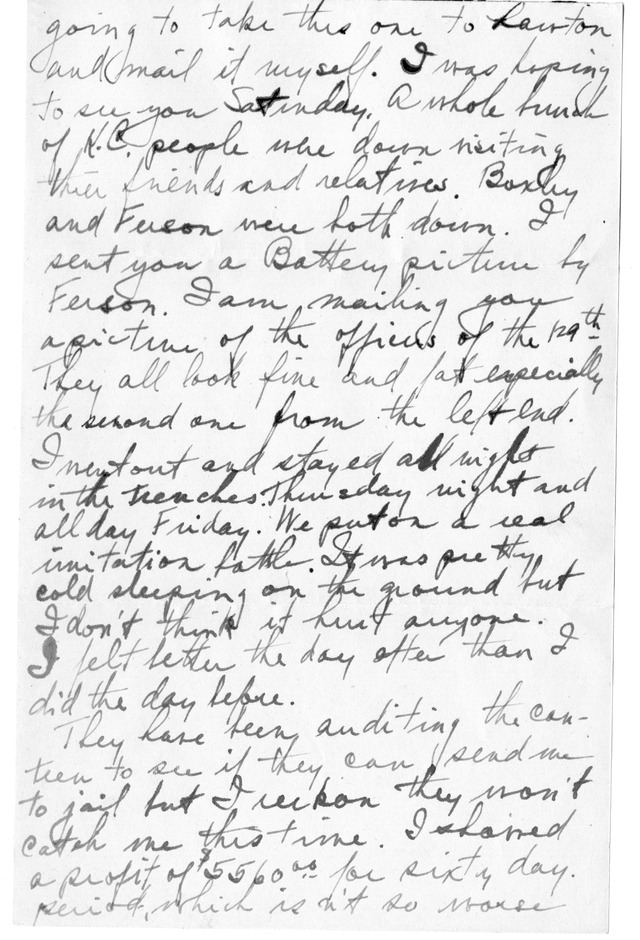 going to take this one to Lawton
and mail it myself. I was hoping
to see you Saturday. A whole bunch
of K.C. people were down visiting
thier friends and relatives. Boxley
and Ferson were both down. I
sent you a Battery picture by
Ferson. I am mailing you
a picture of the officers of the 129th
They all look fine and fat especially
the second one from the left end.
I went out and stayed all night
in the trenches Thursday night and
all day Friday. We put on a real
imitation battle. It was pretty
cold sleeping on the ground but
I don't think it hurt anyone.
I felt better the day after than I
did the day before.
They have been auditing the can-
teen to see if they can send me
to jail but I reckon they won't
catch me this time. I showed
a profit of $5560.00 for sixty day.
period, which is n't so worse